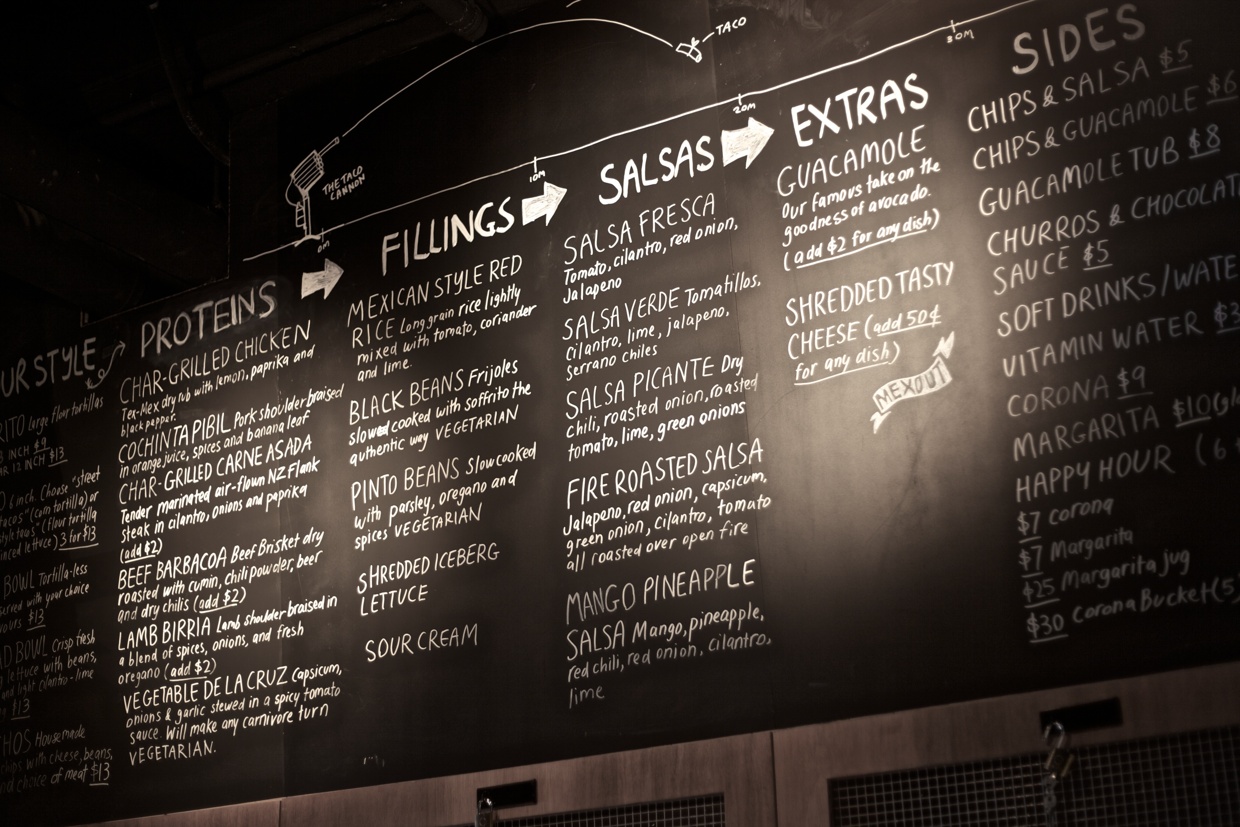 TACO
THE TACO
CANNON
0M
10M
20M
30M
UR STYLE
RITO large flour tortillas
INCH $9
12 INCH $13
6 inch. Choose "street
tacos" (corn tortilla) or
(flour tortilla
lettuce) 3 for $13
BOWL Tortilla-less
with your choice
$13
BOWL Crisp fresh
lettuce with beans,
and light cilantro-lime
$13
HOS Housemade
chips with cheese, beans,
and choice of meat $13
PROTEINS
CHAR-GRILLED CHICKEN
Tex-Mex dry rub with lemon, paprika and
black pepper.
COCHINTA PIBIL Pork shoulder braised
in orange juice, spices and banana leaf
CHAR-GRILLED CARNE ASADA
Tender marinated air-flown NZ Flank
steak in cilantro, onions and paprika
(add $2)
BEEF BARBACOA Beef Brisket dry
roasted with cumin, chili powder, beer
and dry chilis (add $2)
LAMB BIRRIA Lamb shoulder braised in
a blend of spices, onions, and fresh
oregano (add $2)
VEGETABLE DE LA CRUZ Capsicum,
onions & garlic stewed in a spicy tomato
sauce. Will make any carnivore turn
VEGETARIAN.
FILLINGS
MEXICAN STYLE RED
RICE Long grain rice lightly
mixed with tomato, coriander
and lime.
BLACK BEANS Frijoles
slowed cooked with soffrito the
authentic way VEGETARIAN
PINTO BEANS Slow cooked
with parsley, oregano and
spices VEGETARIAN
SHREDDED ICEBERG
LETTUCE
SOUR CREAM
SALSAS
SALSA FRESCA
Tomato, cilantro, red onion,
Jalapeno
SALSA VERDE Tomatillos,
cilantro, lime, jalapeno,
serrano chiles
SALSA PICANTE Dry
chili, roasted onion, roasted
tomato, lime, green onions
FIRE ROASTED SALSA
Jalapeno, red onion, capsicum,
green onion, cilantro, tomato
all roasted over open fire
MANGO PINEAPPLE
SALSA Mango, pineapple,
red chili, red onion, cilantro,
lime
EXTRAS
GUACAMOLE
Our famous take on the
goodness of avocado.
(add $2 for any dish)
SHREDDED TASTY
CHEESE (add 50¢
for any dish)
MEXOUT
SIDES
CHIPS & SALSA $5
CHIPS & GUACAMOLE $6
GUACAMOLE TUB $8
CHURROS & CHOCOLAT
SAUCE $5
SOFT DRINKS/WATE
VITAMIN WATER $3
CORONA $9
MARGARITA $10(gl
HAPPY HOUR (6
$7 Corona
$7 Margarita
$25 Margarita jug
$30 Corona Bucket(5